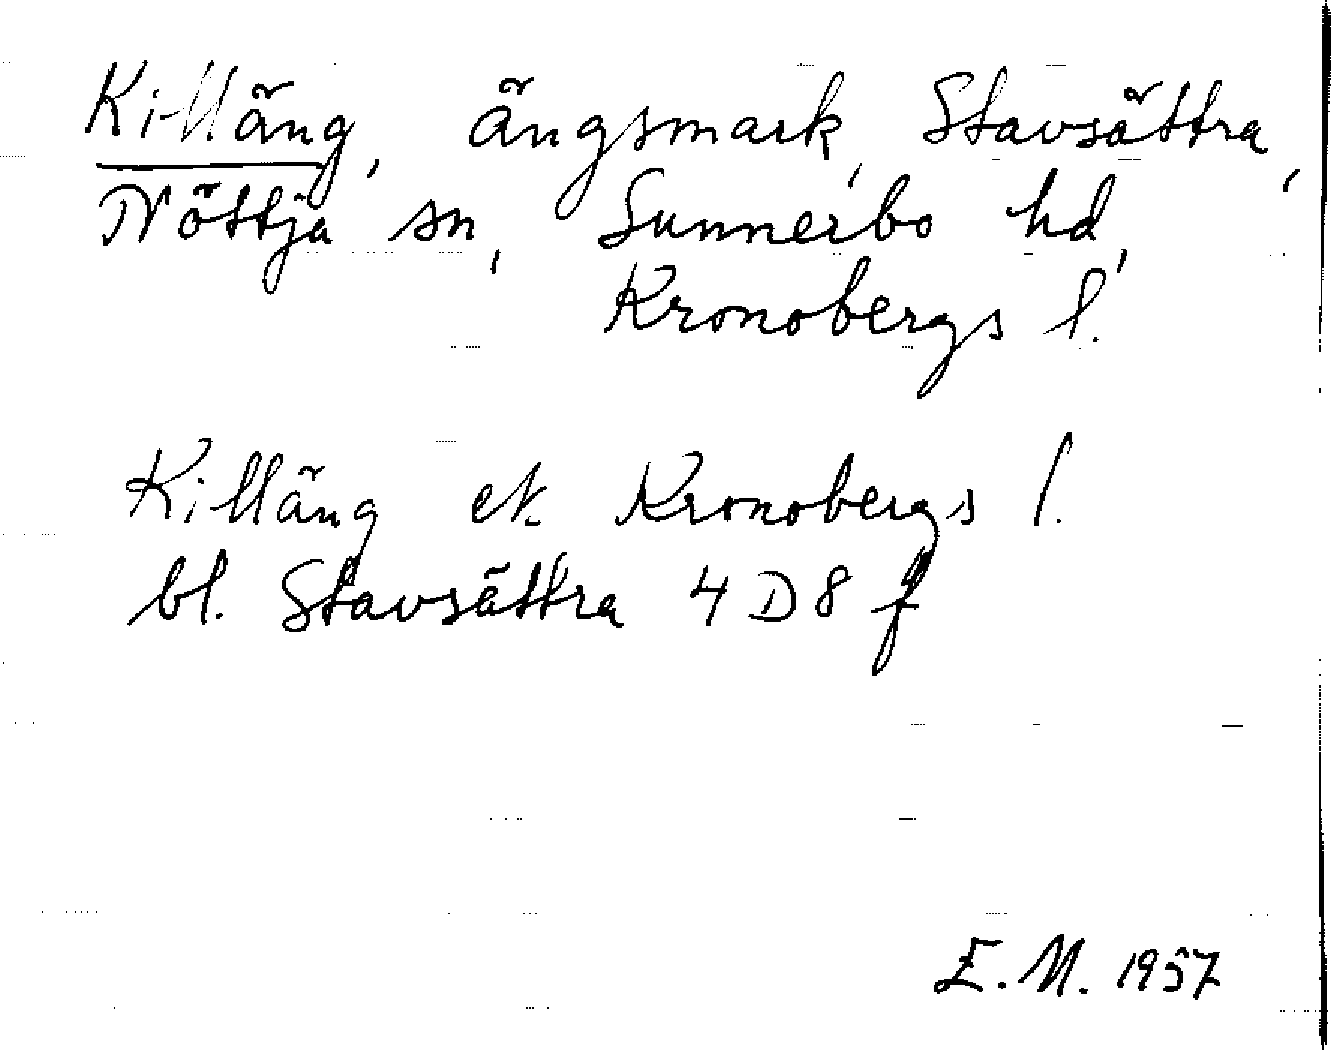 Killäng, ängsmark, Stavsättra,
Nöttja sn, Sunnerbo hd,
Kronobergs l.
Killäng ek. Kronobergs l.
bl. Stavsättra 4 D 8 f
E. M. 1957